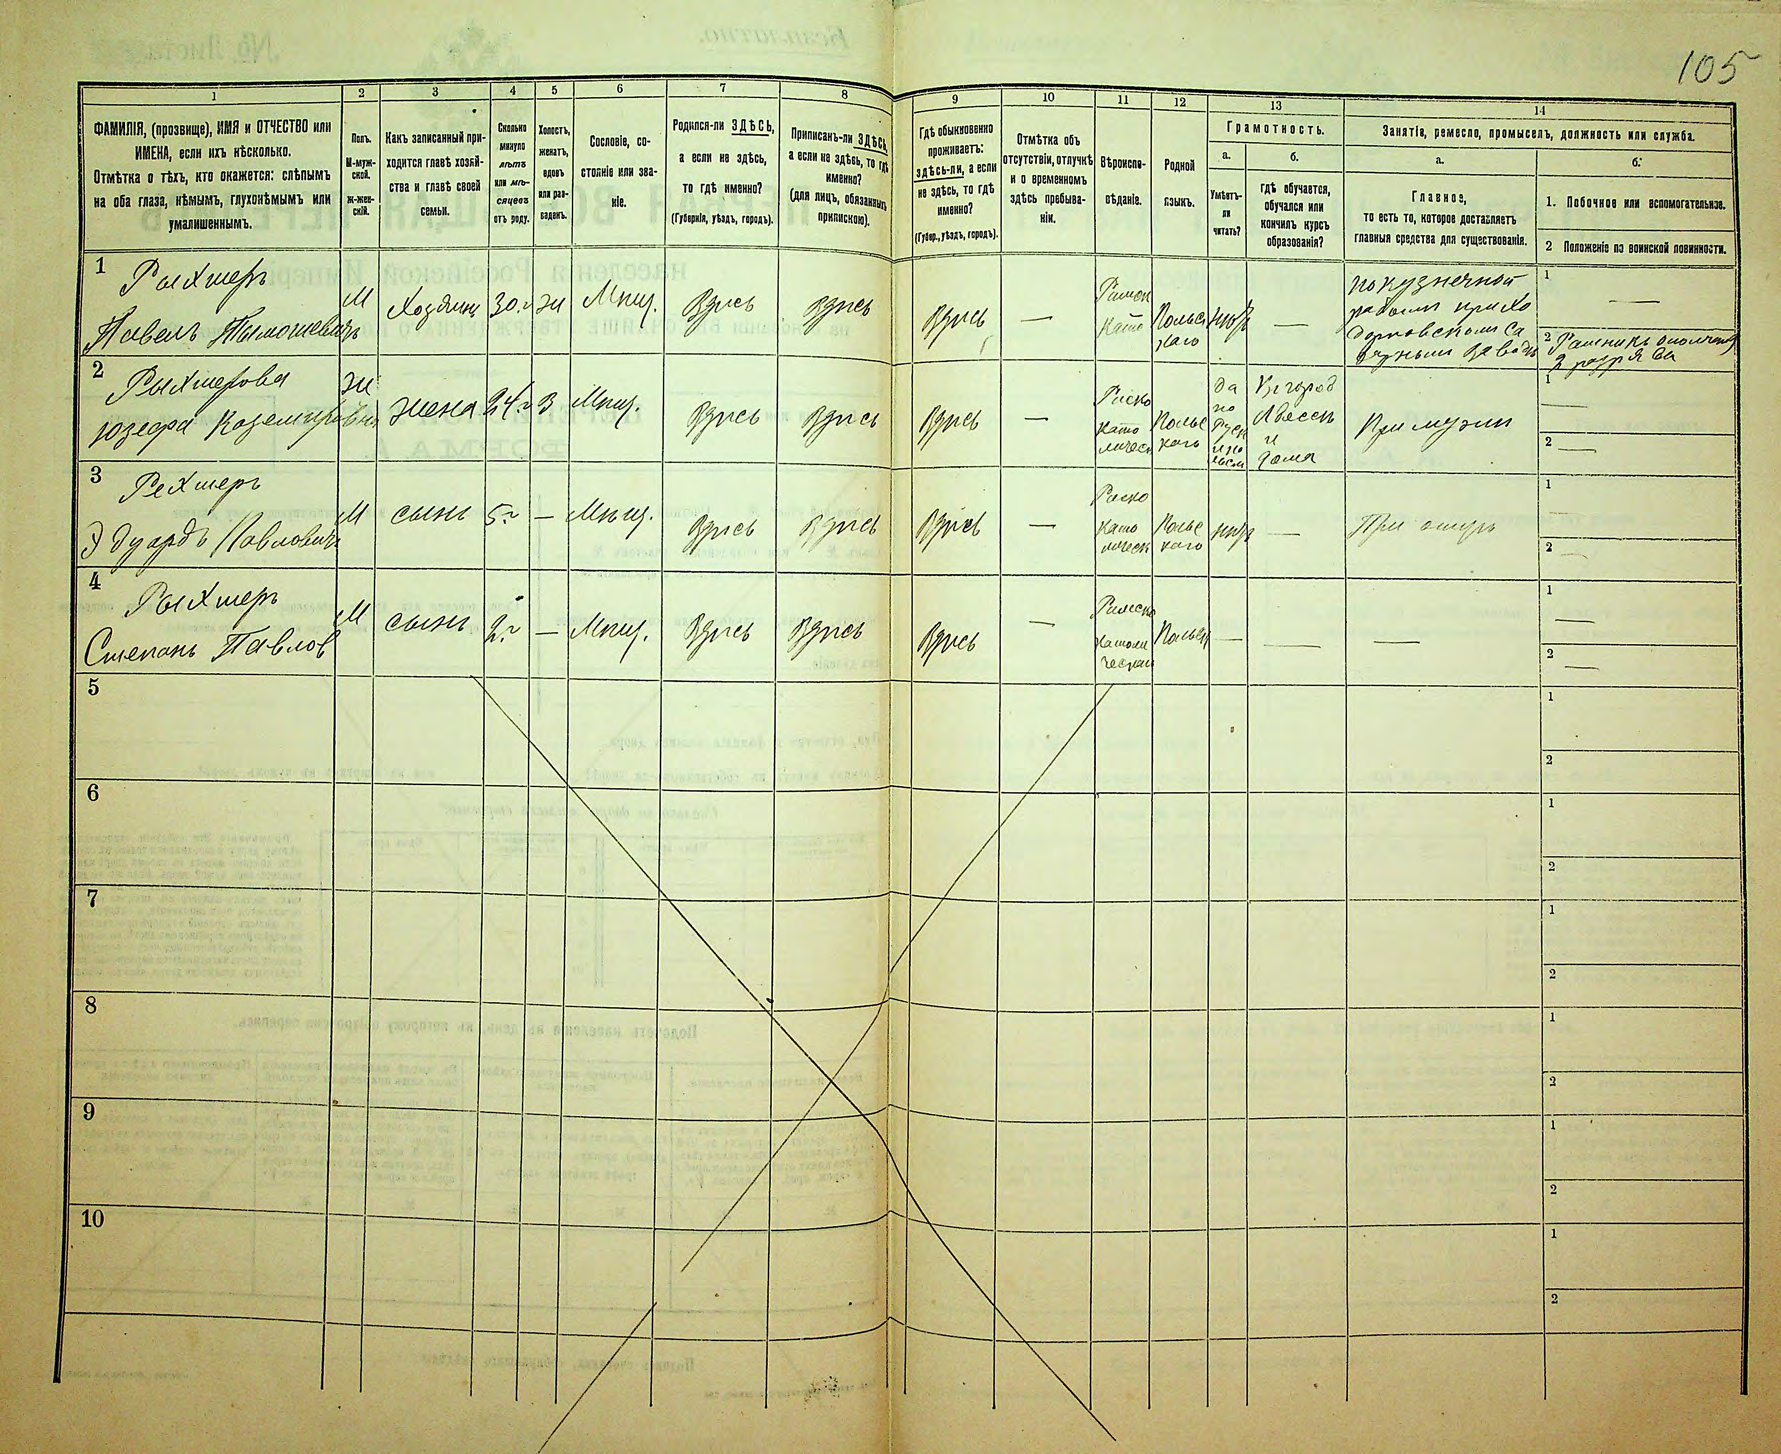 105
1
2
3
4
5
6
7
8
9
10
11
12
13
14
ФАМИЛІЯ, (прозвище), ИМЯ и ОТЧЕСТВО или
ИМЕНА, если ихъ нѣсколько.
Отмѣтка о тѣхъ, кто окажется: слѣпымъ
на оба глаза, нѣмымъ, глухонѣмымъ или
умалишеннымъ.
Полъ.
М-муж-
ской.
Ж-жен-
скій.
Какъ записанный при-
ходится главѣ хозяй-
ства и главѣ своей
семьи.
Сколько
минуло
лѣтъ
или мѣ-
сяцевъ
отъ роду.
Холостъ,
женатъ,
вдовъ
или раз-
веденъ.
Сословіе, со-
стояніе или зва-
ніе.
Родился-ли ЗДѢСЬ,
а если не здѣсь,
то гдѣ именно?
(Губернія, уѣздъ, городъ).
Приписанъ-ли ЗДѢСЬ,
а если не здѣсь, то гдѣ
именно?
(для лицъ, обязанныхъ
припискою).
Гдѣ обыкновенно
проживаетъ:
здѣсь-ли, а если
не здѣсь, то гдѣ
именно?
(Губер., уѣздъ, городъ).
Отмѣтка объ
отсутствіи, отлучкѣ
и о временномъ
здѣсь пребыва-
ніи.
Вѣроиспо-
вѣданіе.
Родной
языкъ.
Грамотность.
а.
Умѣетъ-
ли
читать?
б.
гдѣ обучается,
обучался или
кончилъ курсъ
образованія?
Занятіе, ремесло, промыселъ, должность или служба.
а.
Главное,
то есть то, которое доставляетъ
главныя средства для существованія.
б.
1. Побочное или вспомогательное.
2 Положеніе по воинской повинности.
1
Рыхтеръ
Павелъ Тымошевичъ
М
Хозяинъ
30 г
Мѣщ.
Здѣсь
Здѣсь
Здѣсь
—
Като
Польск
каго
—
по кузнечной
1
—
2 Ратникъ ополчен
2 разряда
2
Рыхтерова
Юзефа Каземировна
Ж
жена
24 г
З
Мѣщ.
Здѣсь
Здѣсь
Здѣсь
—
Римско
като
лическ
Польс
каго
да
по
Руск
и по
польск
В город
Одесск
и
дома
При мужи
1
—
2
—
3
Рехтеръ
Эдуардъ Павловичъ
М
сынъ
5 г
—
Мѣщ.
Здѣсь
Здѣсь
Здѣсь
—
Римско
като
лическ
Польс
каго
нѣтъ
—
При отцѣ
1
—
2
—
4
Рыхтеръ
Степанъ Павлов
М
сынъ
2 г
—
Мѣщ.
Здѣсь
Здѣсь
Здѣсь
—
Римско
католи
ческаго
Польск
—
—
—
1
—
2
—
5
1
2
6
1
2
7
1
2
8
1
2
9
1
2
10
1
2